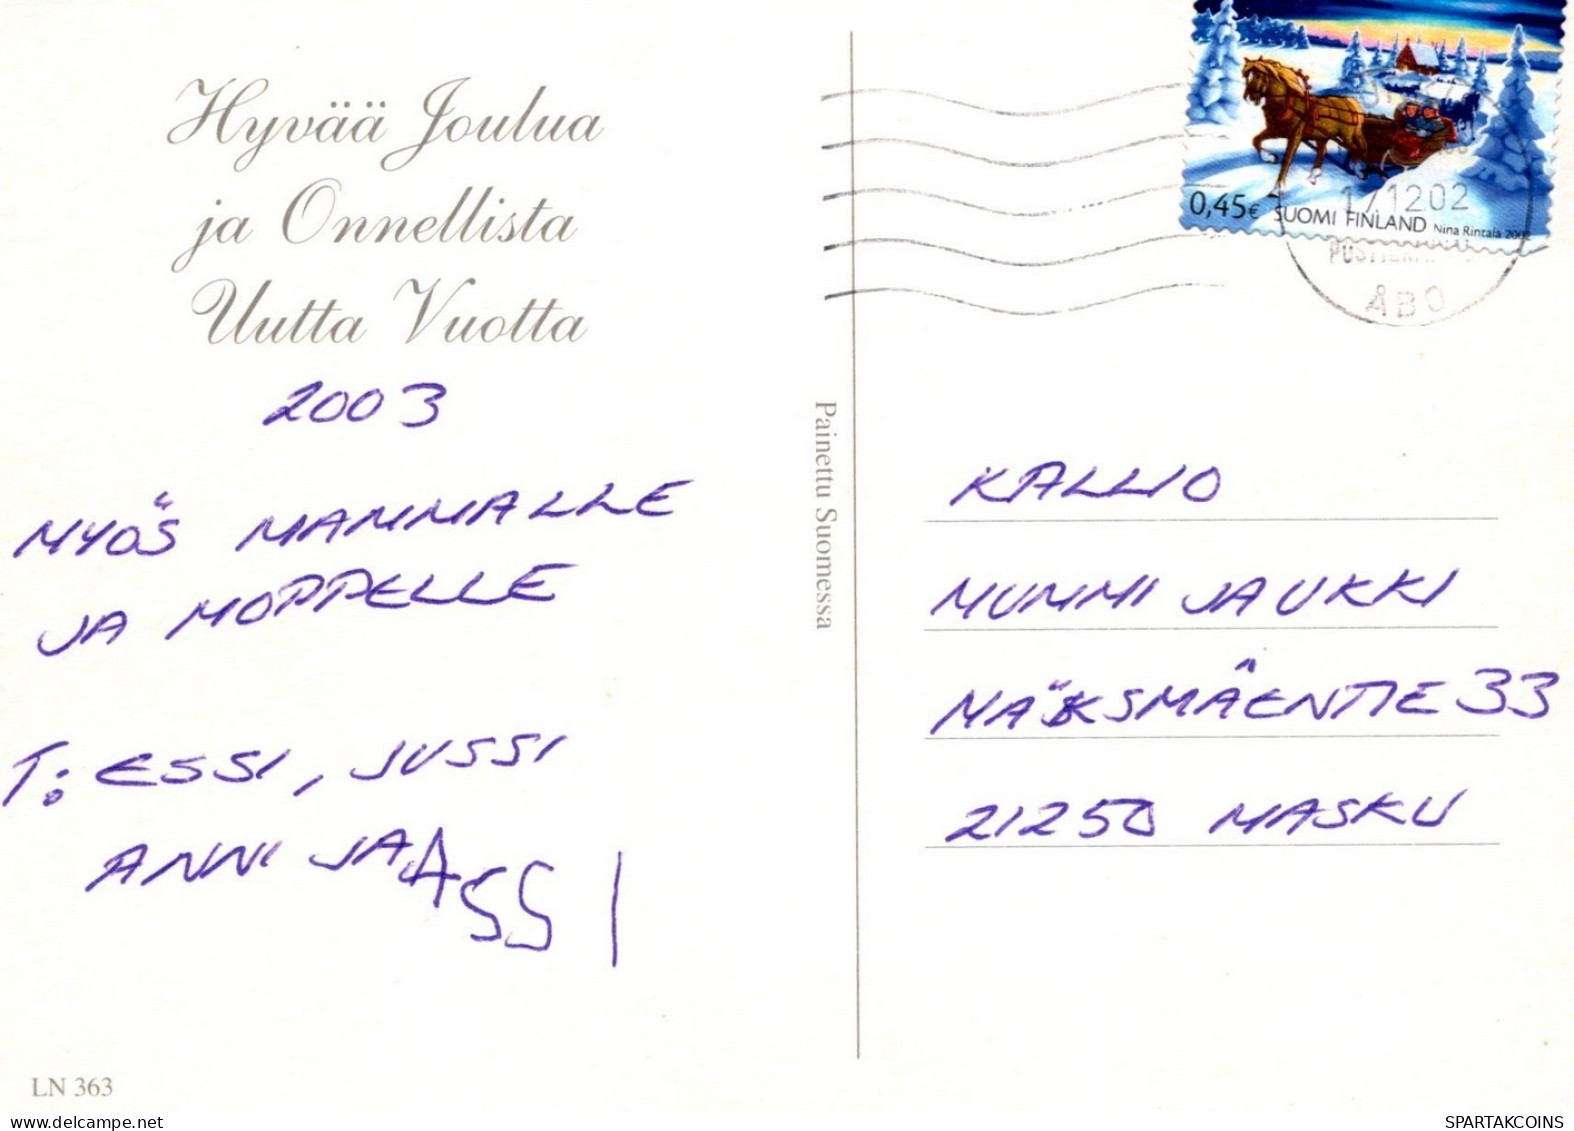 Hyvää Joulua
ja Onnellista
Uutta Vuotta
2003
MYÖS MAMMALLE
JA MOPPELLE
T: ESSI, JUSSI
ANNI JA ASSI
LN 363
Painettu Suomessa
0,45€ SUOMI FINLAND Nina Rintala 2002
171202
ÅBO
KALLIO
MUMMI JA UKKI
NÄKSMÄENTIE 33
21250 MASKU
SPARTAKCOINS
delcampe.net